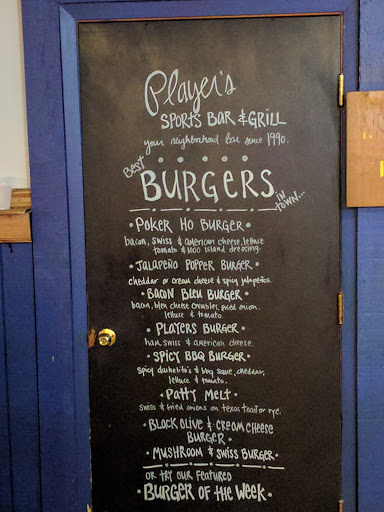 Player's
SPORTS BAR & GRILL
your neighborhood bar since 1990.
BEST
BURGERS
IN TOWN...
• POKER HO BURGER •
bacon, swiss & american cheese, lettuce
tomato & 1000 island dressing.
• JALAPEÑO POPPER BURGER •
cheddar or cream cheese & spicy jalapeños.
• BACON BLEU BURGER •
bacon, bleu cheese crumbles, fried onion.
lettuce & tomato.
• PLAYERS BURGER •
ham, swiss & american cheese.
• SPICY BBQ BURGER •
spicy & bbq sauce, cheddar,
lettuce & tomato.
• PATTY MELT •
swiss & fried onions on texas toast or rye.
• BLACK OLIVE & CREAM CHEESE
BURGER •
• MUSHROOM & SWISS BURGER •
OR TRY OUR FEATURED
• BURGER OF THE WEEK •